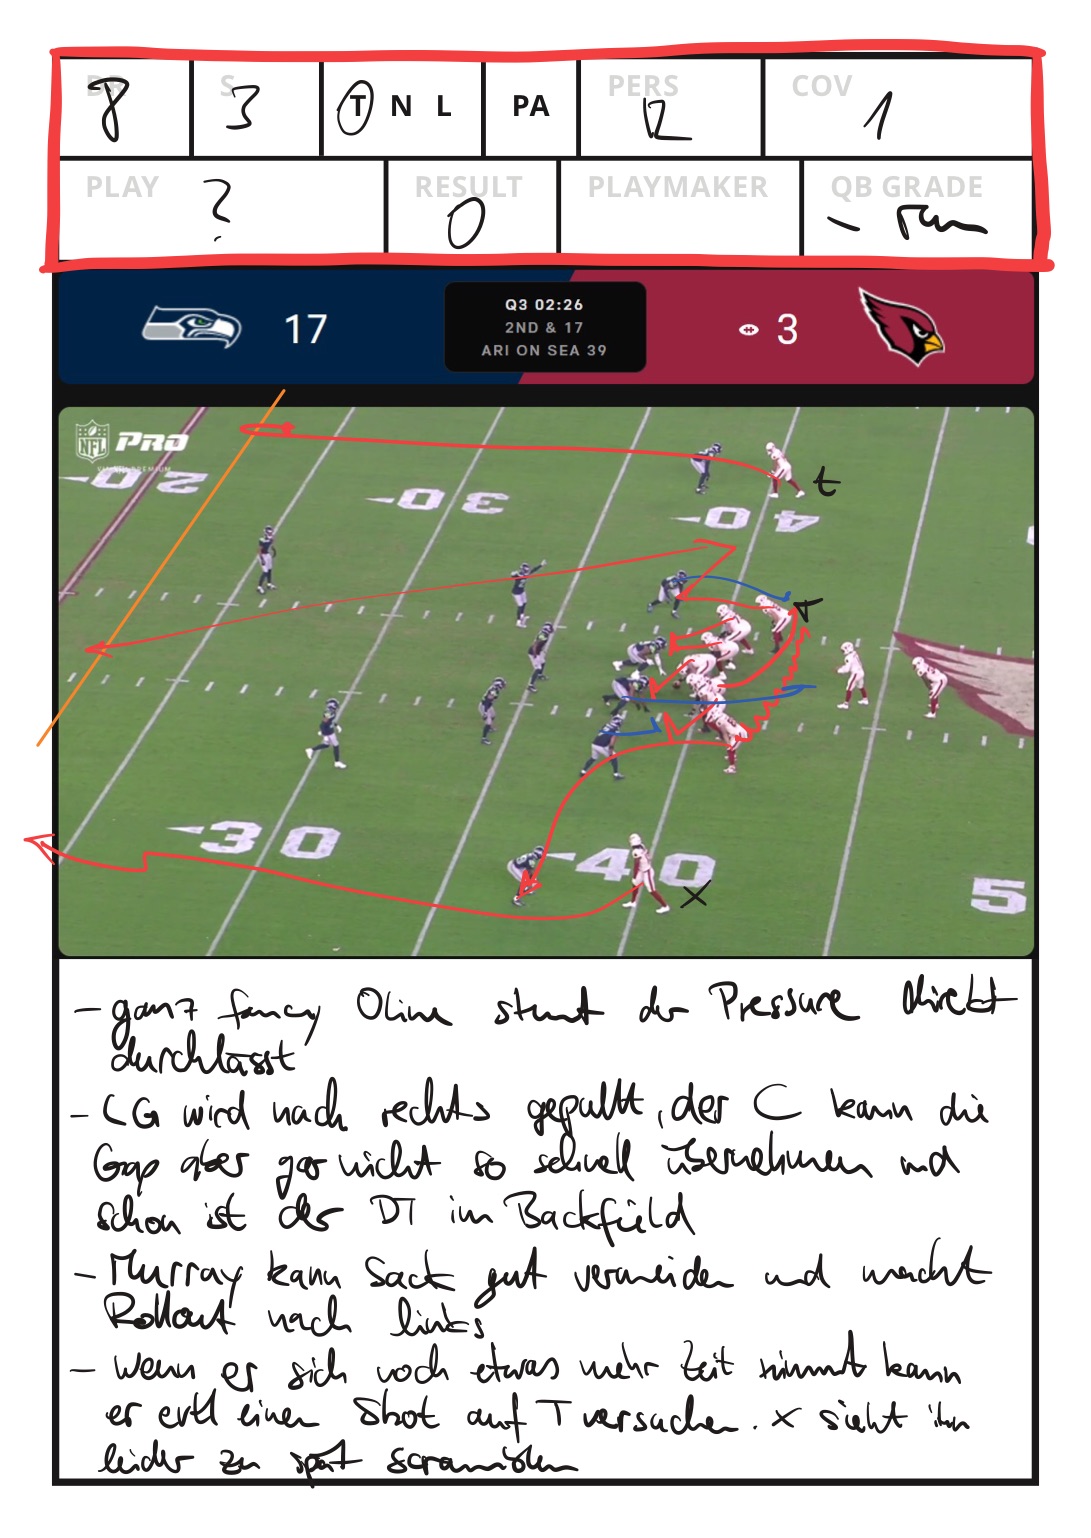 DR S T N L PA PERS COV
8 3 12 1
PLAY RESULT PLAYMAKER QB GRADE
? 0 - run
17 Q3 02:26 3
2ND & 17
ARI ON SEA 39
NFL PRO
20 30 40
t
T
30 40 5
X
- ganz fancy Oline stunt der Pressure direkt
durchlässt
- LG wird nach rechts gepullt, der C kann die
Gap aber gar nicht so schnell übernehmen und
schon ist der DT im Backfield
- Murray kann Sack gut vermeiden und macht
Rollout nach links
- wenn er sich noch etwas mehr Zeit nimmt kann
er evtl einen Shot auf T versuchen. X sieht ihn
leider zu spät scramblen